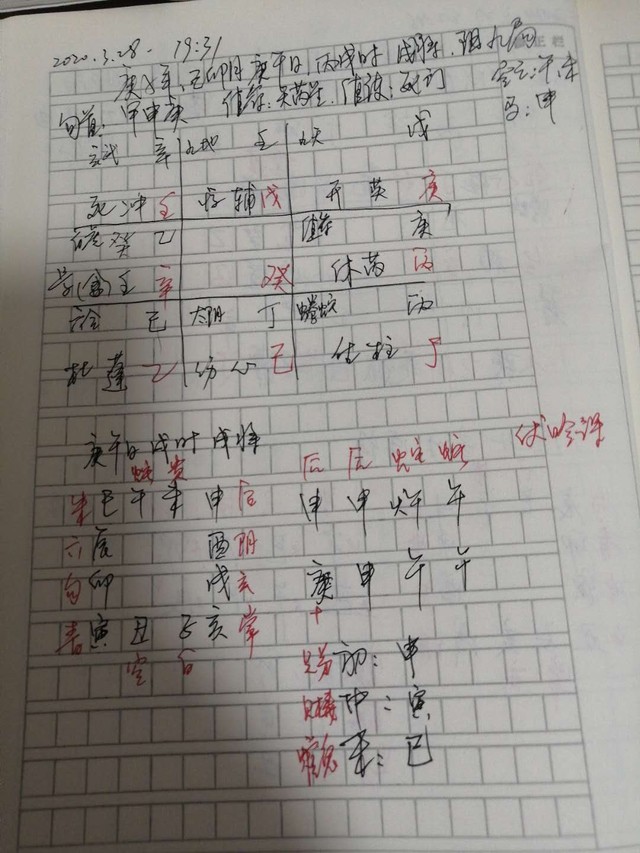 2020.3.28. 19:31
庚子年,己卯月庚午日,丙戌时 戌将,阳九局
旬首:甲申庚 值符:天芮星,值使:死门
空亡:午未
马:申
辛 九地 壬 九天 戊
死冲壬 辅戊 开英庚
癸乙 值符 庚
壬辛 癸 休芮丙
六合 己 太阴 丁 螣蛇 丙
杜蓬乙 心己 生柱丁
庚午日戌时戌将 伏吟课
蛇 贵 后 后 蛇 蛇
朱巳午未申后 申 申 午 午
六辰 酉阴
勾卯 戌玄 庚 申 午 午
青寅丑子亥常
空 白
兄弟 初:申
中:寅
官鬼 末:巳